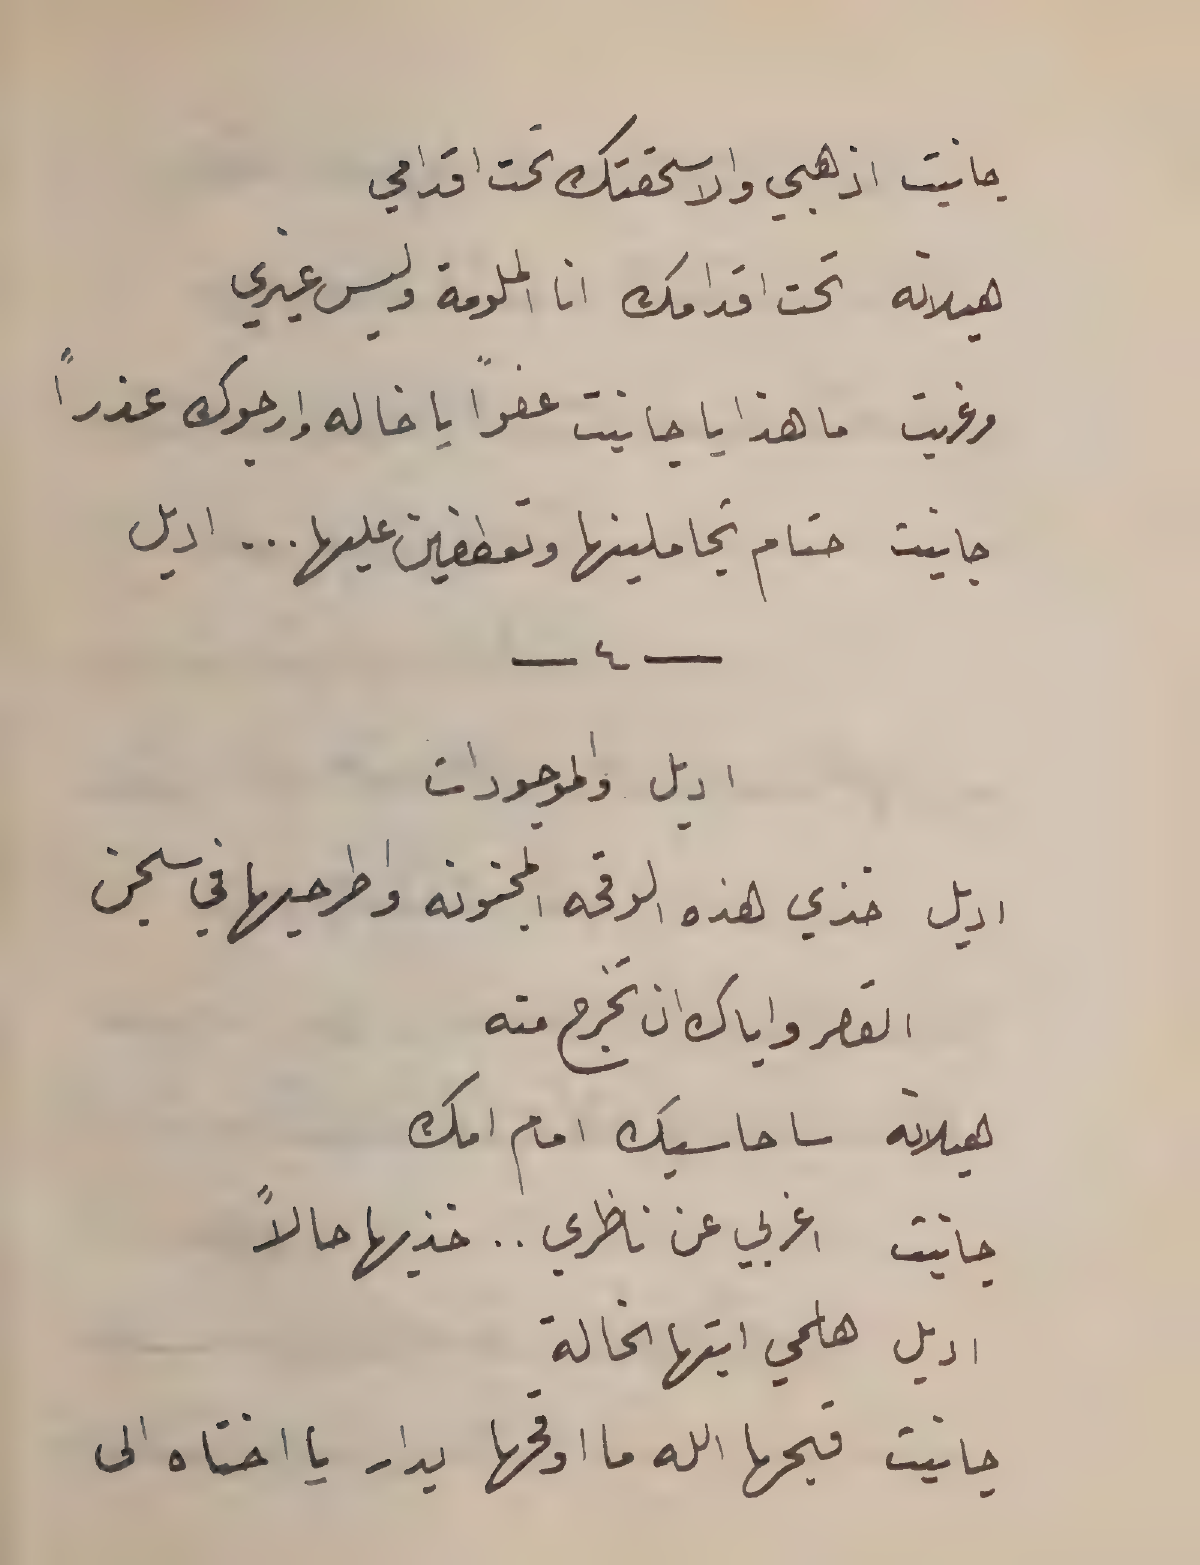 جانيت اذهبي والا سحقتك تحت اقدامي
هيلانة تحت اقدامك انا الملومة وليس غيري
مرغريت ما هذا يا جانيت عفواً يا خاله وارجوك عذراً
جانيت حتام تجاملينها وتعطفين عليها... اديل
— ٤ —
اديل والموجودات
اديل خذي هذه الوقحه المجنونه واطرحيها في سجن
القصر واياك ان تخرج منه
هيلانة ساحاسبك امام امك
جانيت اغربي عن ناظري .. خذيها حالاً
اديل هلمي ايتها الخالة
جانيت قبحها الله ما اوقحها يدار يا اختاه الى